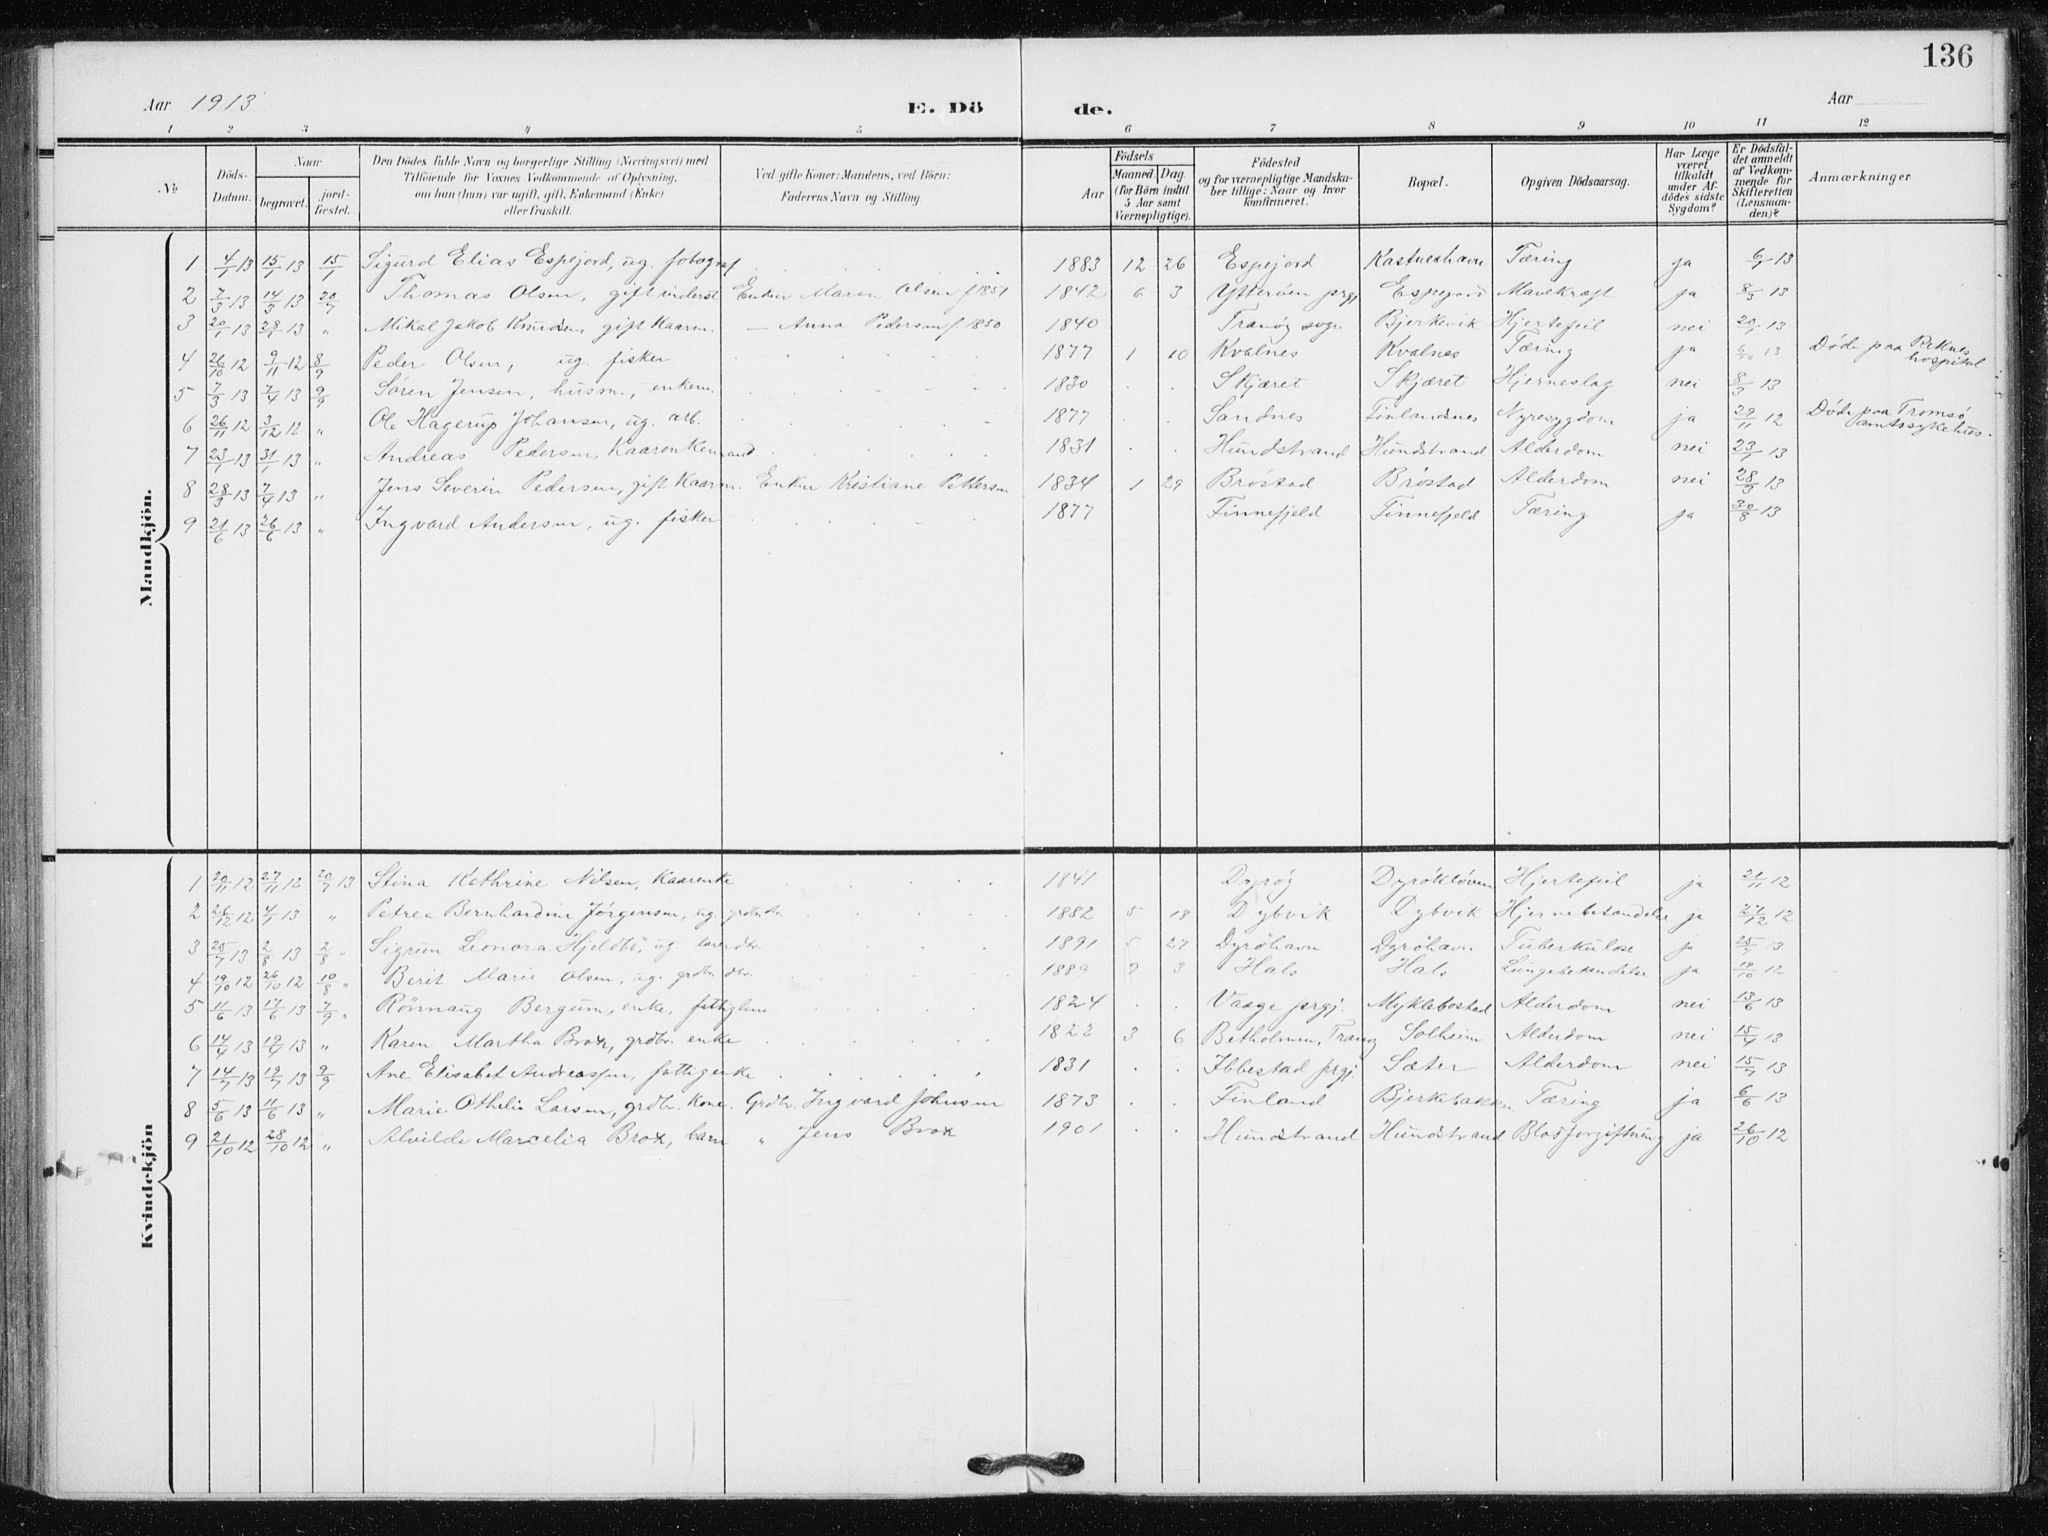 136
Aar 1913 E. Dö de. Aar
1 2 3 4 5 6 7 8 9 10 11 12
№ Döds-Datum. Naar begravet. jord-fæstet. Den Dödes fulde Navn og borgerlige Stilling (Næringsvei) med Tilföiende for Voxnes Vedkommende af Oplysning, om han (hun) var ugift, gift, Enkemand (Enke) eller fraskilt. Ved gifte Koner: Mandens, ved Börn: Faderens Navn og Stilling. Födsels Aar Maaned. Dag. (for Börn indtil 5 Aar samt Værnepligtige). Födested og for værnepligtige Mandska-ber tillige: Naar og hvor konfirmeret. Bopæl. Opgiven Dödsaarsag. Har Læge været tilkaldt under Af-dödes sidste Sygdom? Er Dödsfal-det anmeldt af Vedkom-mende for Skifteretten (Lensman-den)? Anmærkninger
Mandkjön.
1 4/1 13 15/1 13 15/1 Sigurd Elias Espejord, ug. fotograf 1883 12 26 Espejord Kastneshavn Tæring ja 6/1 13
2 7/3 13 14/3 13 20/7 Thomas Olsen, gift inderst Enken Maren Olsen f. 1851 1842 6 3 Ytterøen prgj Espejord Mavekræft ja 8/3 13
3 20/1 13 28/1 13 " Mikal Jakob Knudsen, gift Kaarm. — Anna Pedersen f. 1850 1840 Tranøy sogn Bjerkvik Hjertefeil nei 20/1 13
4 26/10 12 9/11 12 8/9 Peder Olsen, ug. fisker 1877 1 10 Kvalnes Kvalnes Tæring ja 6/10 13 Døde paa Reknes hospital
5 7/3 13 7/4 13 9/9 Søren Jensen, husm., enkem. 1830 Skjæret Skjæret Hjerneslag nei 8/3 13
6 26/11 12 3/12 12 " Ole Hagerup Johansen, ug. arb. 1877 Sandnes Finlandsnes Nyresygdom ja 29/11 12 Døde paa Tromsø amtssykehus.
7 23/1 13 31/1 13 " Andreas Pedersen, Kaarenkemand 1831 Hundstrand Hundstrand Alderdom nei 23/1 13
8 28/3 13 7/4 13 " Jens Severin Pedersen, gift Kaarm. Enken Kristiane Pettersen 1834 1 29 Brøstad Brøstad Alderdom nei 28/3 13
9 21/6 13 26/6 13 " Ingvard Andersen, ug. fisker 1877 Finnefjeld Finnefjeld Tæring ja 30/8 13
Kvindekjön
1 20/11 12 27/11 12 20/7 13 Stina Kathrine Nilsen, Kaarenke 1841 Dyrøy Dyrökløven Hjertefeil ja 21/11 12
2 26/12 12 4/1 13 " Petrea Bernhardine Jørgensen, ug. grdbr.dtr. 1882 5 18 Dybvik Dybvik Hjernebetændelse ja 27/12 12
3 25/7 13 2/8 13 2/8 " Sigrun Leonora Hjeldbö, ug. 1891 5 27 Dyröhavn Dyröhavn Tuberkulose ja 13
4 19/10 12 26/10 12 10/8 " Berit Marie Olsen, ug. grdbr. dtr. 1889 9 3 Hals Hals Lungebetændelse ja 19/10 12
5 11/6 13 17/6 13 7/9 " Rönnaug Bergum, enke, fattiglem 1824 Vaage prgj. Myklebostad Alderdom nei 13/6 13
6 14/4 13 19/4 13 " Karen Martha Brox, grdbr. enke 1822 3 6 Betholmen, Tranöy Solheim Alderdom nei 15/4 13
7 14/7 13 19/7 13 9/9 Ane Elisabet Andreassen, fattigenke 1831 Ibbestad prgj. Sæter Alderdom nei 15/7 13
8 5/6 13 11/6 13 " Marie Othelie Larsen, grdbr. Kone. Grdbr. Ingvard Johnsen 1873 Finland Bjerkebakken Tæring ja 6/6 13
9 21/10 12 28/10 12 " Alvilde Marcelia Brox, barn " Jens Brox 1901 Hundstrand Hundstrand Blodforgiftning ja 26/10 12